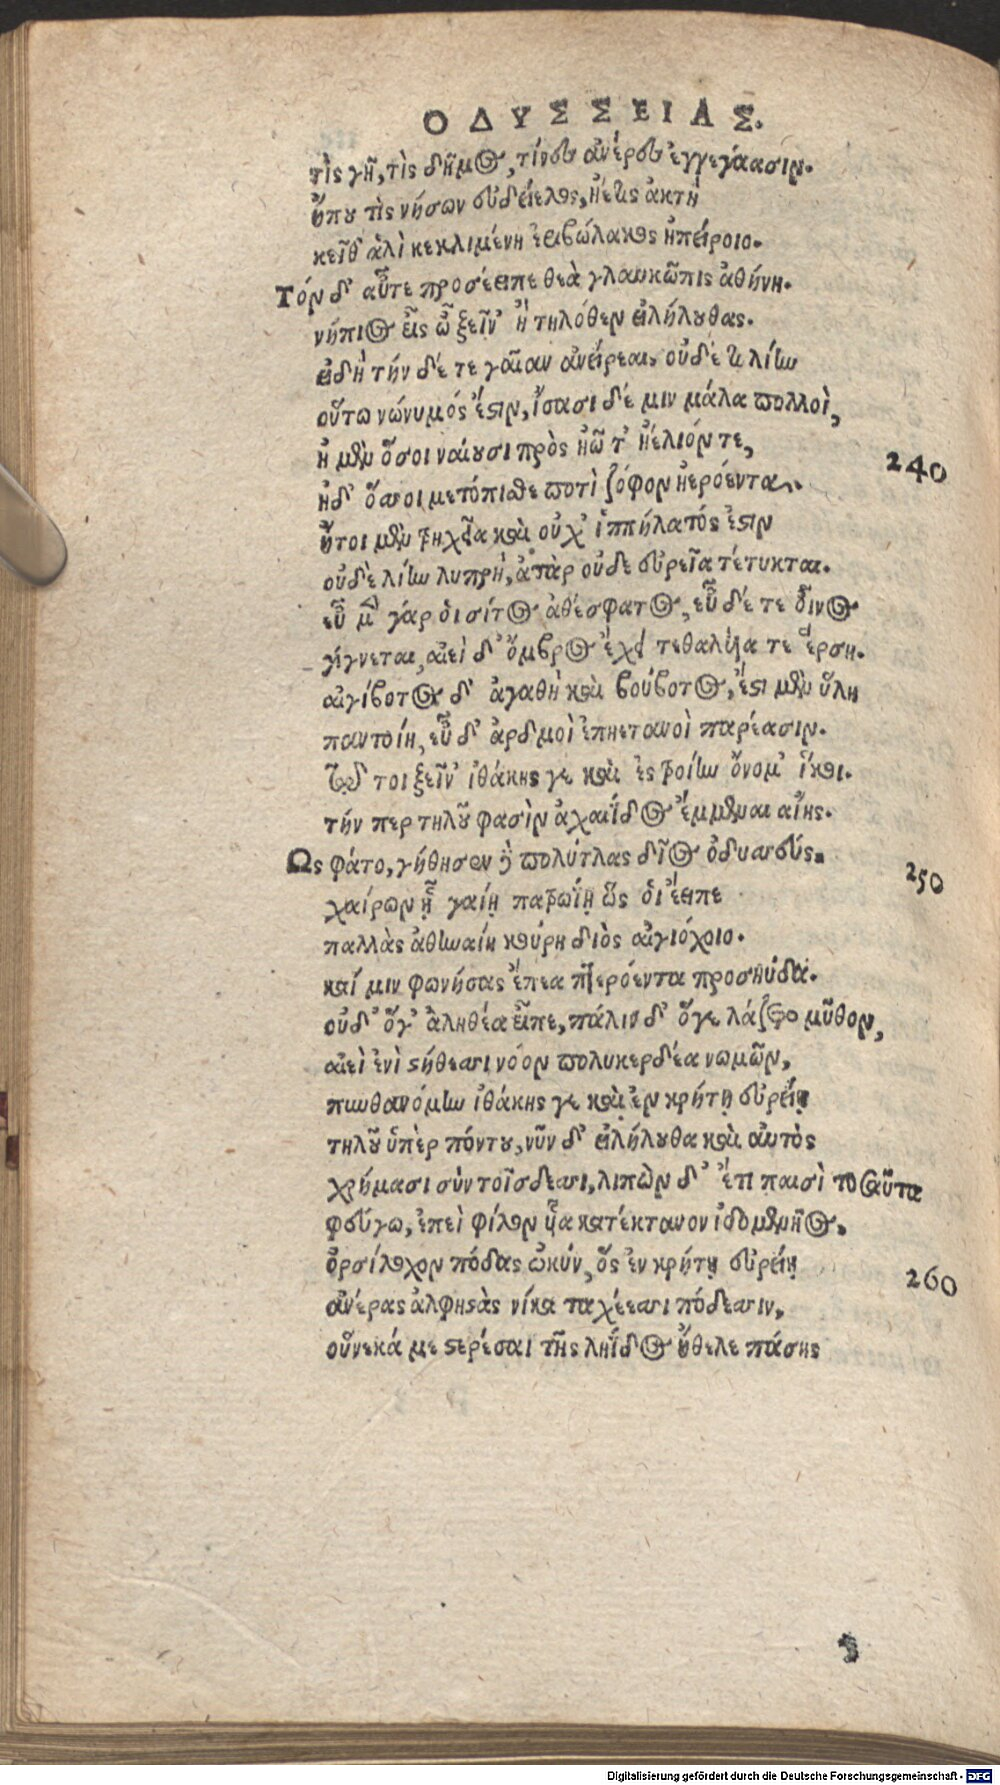 ΟΔΥΣΣΕΙΑΣ.
τὶς γῆ, τὶς δῆμος, τίνες ἀνέρες ἐγγεγάασιν.
ἤπου τὶς νήσων εὐδείελος, ἠέ τις ἀκτὴ
κεῖθ' ἁλὶ κεκλιμένη ἐριβώλακος ἠπείροιο.
Τόν δ' αὖτε προσέειπε θεὰ γλαυκῶπις ἀθήνη.
νήπιος εἶς ὦ ξεῖν' ἢ τηλόθεν εἰλήλουθας.
εἰδὴ τήν δέ τε γαῖαν ἀνείρεαι, οὐδέ τι λίην
οὕτω νώνυμός ἐστιν, ἴσασι δέ μιν μάλα πολλοὶ,
ἠ μὲν ὅσοι ναίουσι πρὸς ἠῶ τ' ἠέλιόν τε,
240
ἠδ' ὅσσοι μετόπισθε ποτὶ ζόφον ἠερόεντα.
ἤτοι μὲν τρηχεῖα καὶ οὐχ' ἱππήλατός ἐστιν
οὐδὲ λίην λυπρὴ, ἀτὰρ οὐδε εὐρεῖα τέτυκται.
εὖ μὲν γάρ οἱ σίτος ἀθέσφατος, εὖ δέ τε οἶνος
γίγνεται, αἰεὶ δ' ὄμβρος ἔχει τεθαλῆά τε ἔερση.
αἰγίβοτος δ' ἀγαθὴ καὶ βούβοτος, ἔστι μὲν ὕλη
παντοίη, εὖ δ' ἀρδμοὶ ἐπηετανοὶ παρέασιν.
Τῷ τοι ξεῖν' ἰθάκης γε καὶ ἐς τροίην ὄνομ' ἵκει.
τήν περ τηλοῦ φασὶν ἀχαιΐδος ἔμμεναι αἴης.
Ως φάτο, γήθησεν δὲ πολύτλας δῖος ὀδυσσεύς.
250
χαίρων ᾗ γαίῃ πατρωΐῃ ὥς οἱ ἔειπε
παλλὰς ἀθηναίη κούρη διὸς αἰγιόχοιο.
καί μιν φωνήσας ἔπεα πτερόεντα προσηύδα.
οὐδ' ὅγ' ἀληθέα εἶπε, πάλιν δ' ὅγε λάζετο μῦθον,
αἰεὶ ἐνὶ στήθεσσι νόον πολυκερδέα νωμῶν,
πυνθανόμην ἰθάκης γε καὶ ἐν κρήτῃ εὐρείῃ
τηλοῦ ὑπὲρ πόντου, νῦν δ' εἰλήλουθα καὶ αὐτὸς
χρήμασι σὺν τοῖσδεσσι, λιπὼν δ' ἔτι παισὶ τοσαῦτα
φεύγω, ἐπεὶ φίλον υἷα κατέκτανον ἰδομενῆος,
ὀρσίλοχον πόδας ὠκύν, ὅς ἐν κρήτῃ εὐρείῃ
260
ἀνέρας ἀλφηστὰς νίκα ταχέεσσι πόδεσσιν,
οὕνεκά με στερέσαι τῆς ληΐδος ἤθελε πάσης
Digitalisierung gefördert durch die Deutsche Forschungsgemeinschaft - DFG